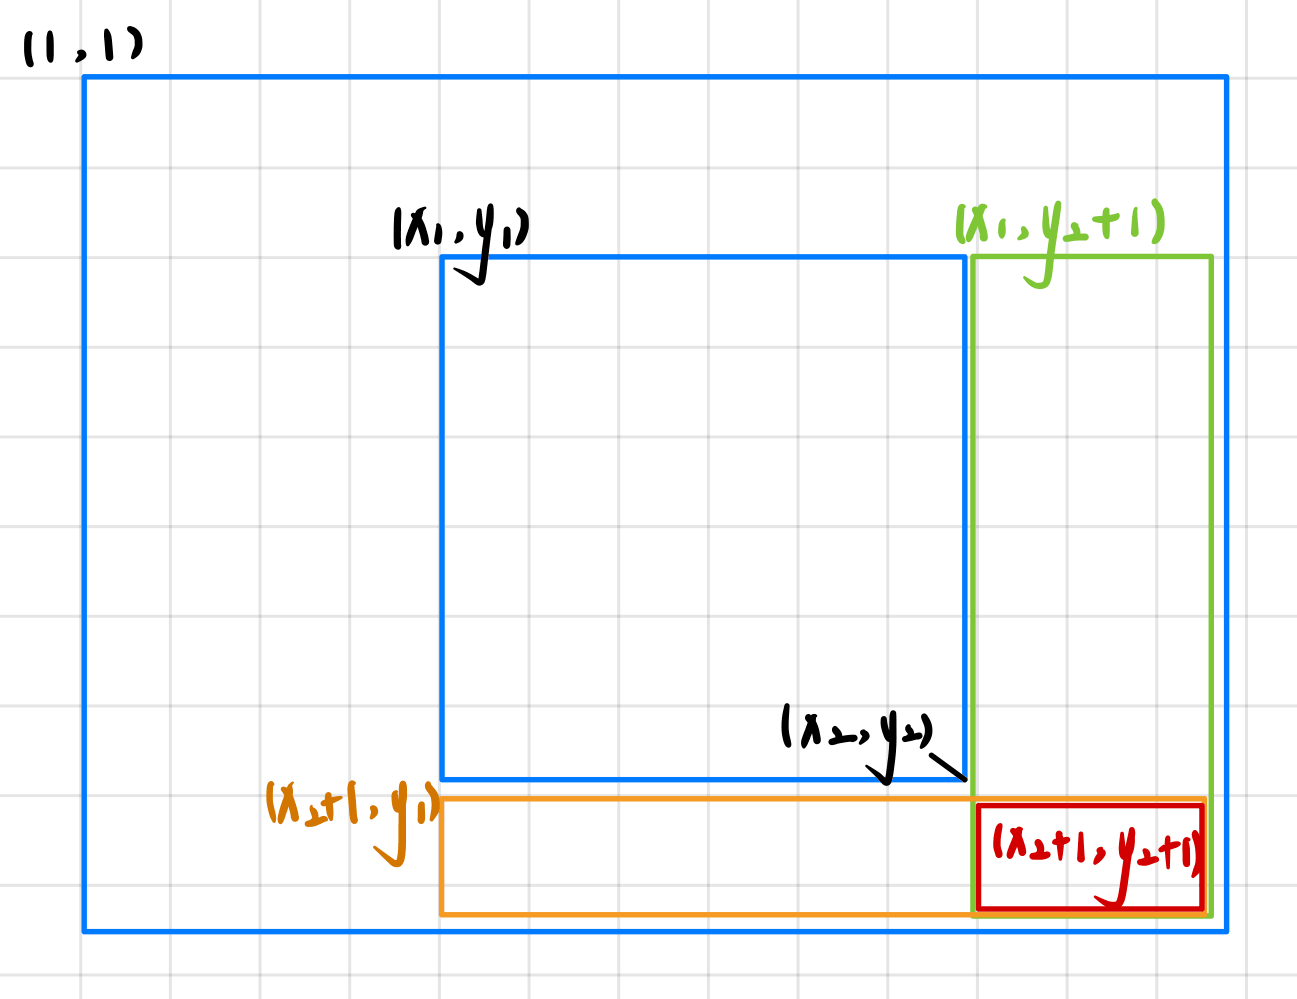 (1,1)
(x₁,y₁)
(x₁,y₂+1)
(x₂,y₂)
(x₂+1,y₁)
(x₂+1,y₂+1)